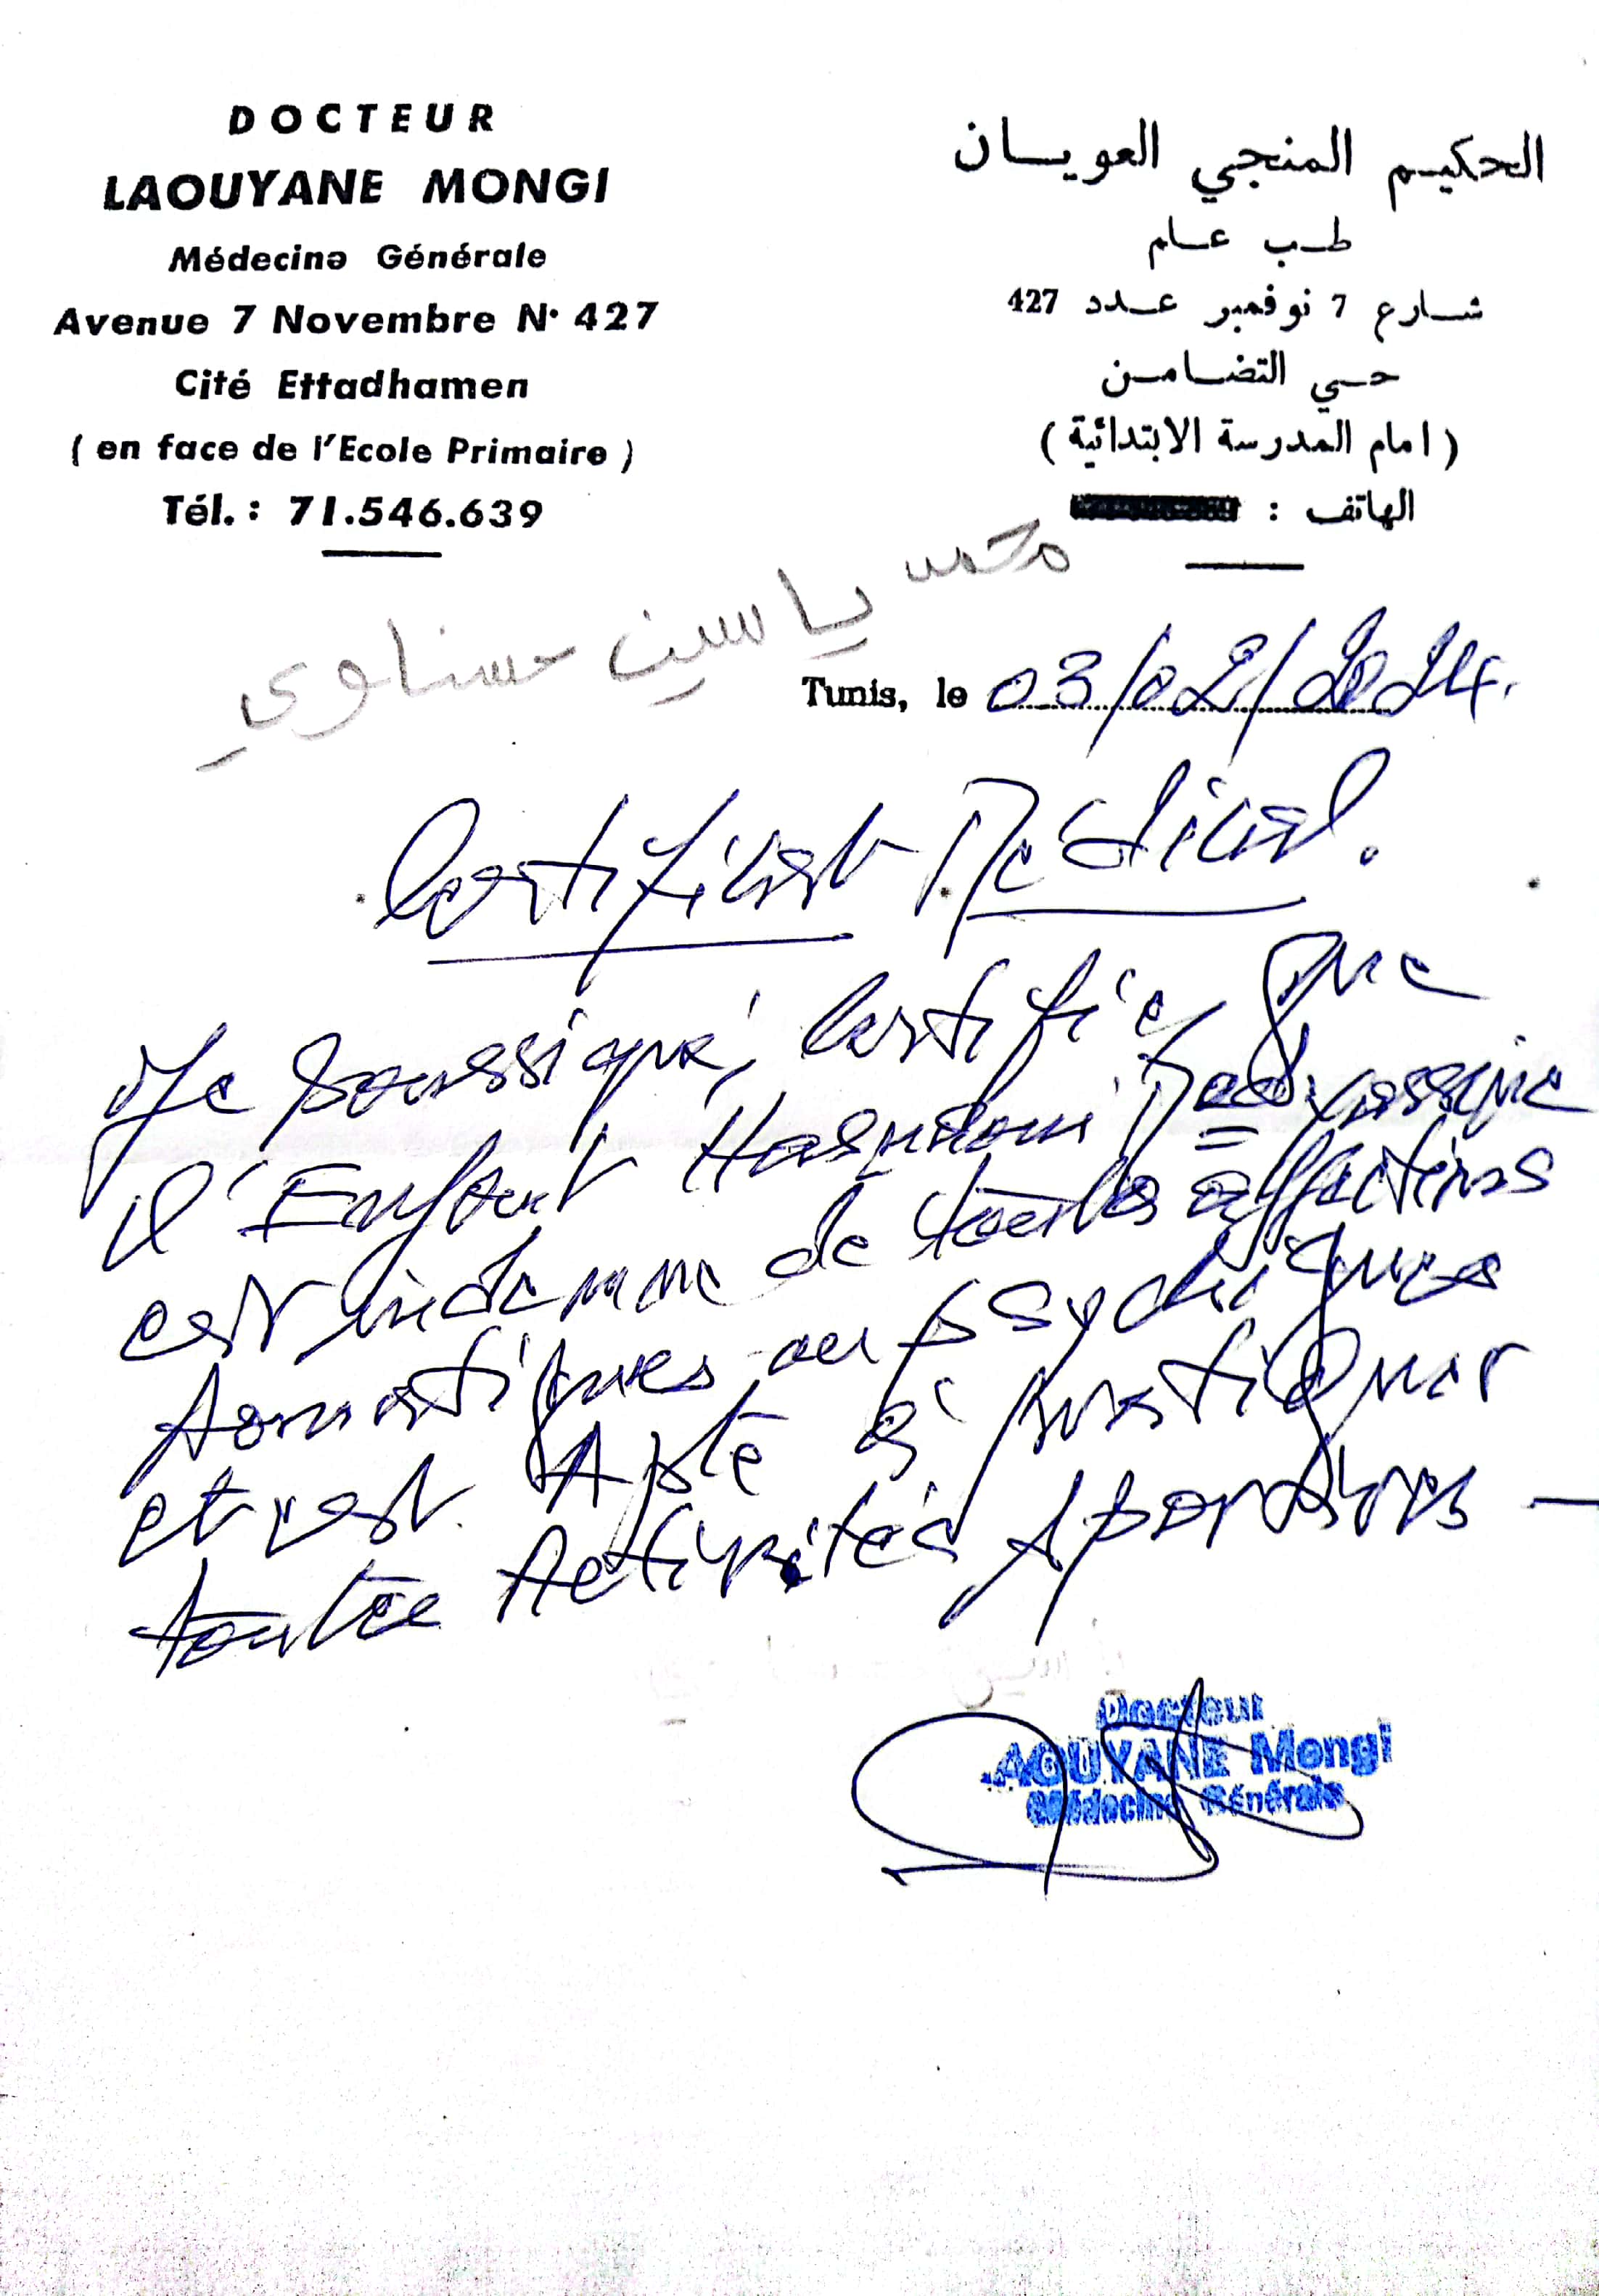 DOCTEUR
LAOUYANE MONGI
Médecine Générale
Avenue 7 Novembre N° 427
Cité Ettadhamen
( en face de l'Ecole Primaire )
Tél. : 71.546.639
الحكيم المنجي العويان
طب عام
شارع 7 نوفمبر عدد 427
حي التضامن
( امام المدرسة الابتدائية )
الهاتف :
محمد ياسين حسناوي
Tunis, le 03/02/2024.
Certificat Médical.
Je soussigné, certifie que
l'Enfant Hasnaoui Med Yassine
est indemne de toutes affections
somatiques ou psychiques
et est Apte à pratiquer
toutes Activités sportives
Docteur
LAOUYANE Mongi
Médecine Générale